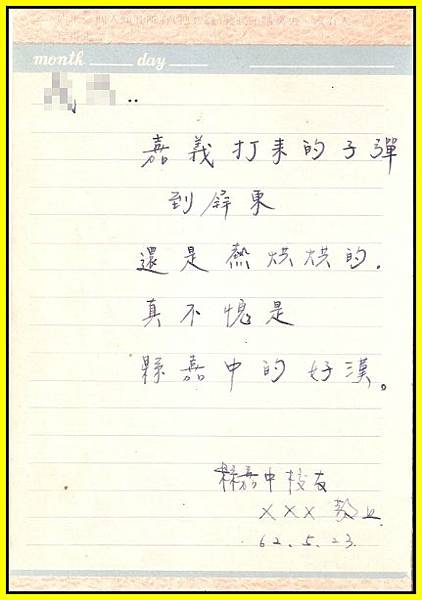 month day
嘉義打來的子彈
到屏東
還是熱烘烘的.
真不愧是
縣嘉中的好漢。
縣嘉中校友
××× 敬上
62.5.23